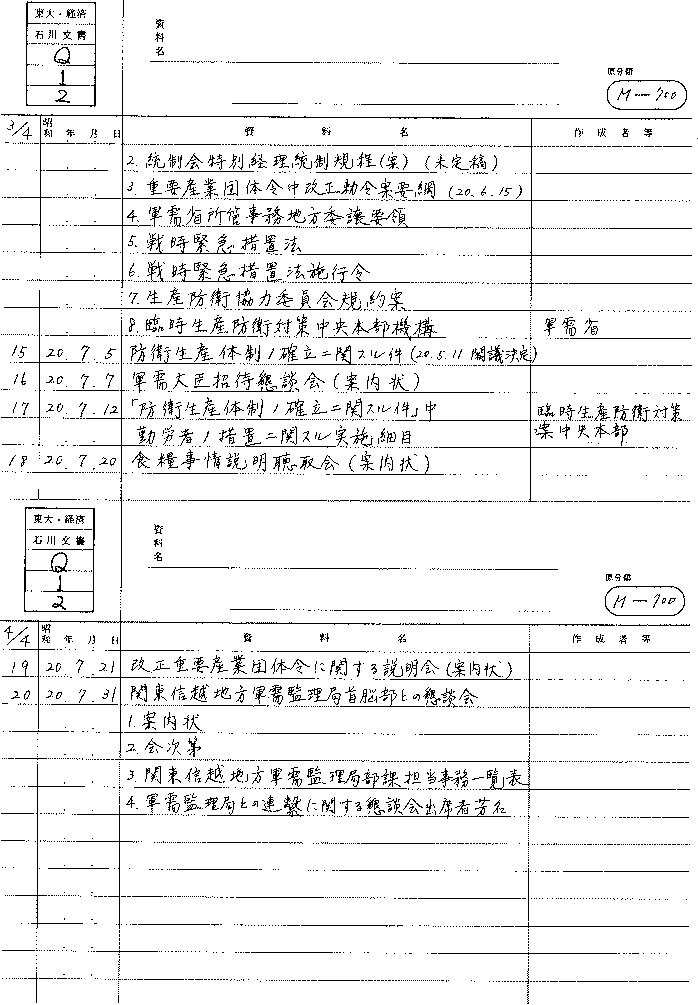 東大・経済
石川文書
Q
1
2
資料名
原分類
M-700
3/4 昭和 年 月 日 資料名 作成者等
2. 統制会特別経理統制規程(案)(未定稿)
3. 重要産業団体令中改正勅令案要綱 (20.6.15)
4. 軍需省所管事務地方委譲要領
5. 戦時緊急措置法
6. 戦時緊急措置法施行令
7. 生産防衛協力委員会規約案
8. 臨時生産防衛対策中央本部機構 軍需省
15 20 7 5 防衛生産体制ノ確立ニ関スル件 (20.5.11 閣議決定)
16 20 7 7 軍需大臣招待懇談会(案内状)
17 20 7 12 「防衛生産体制ノ確立ニ関スル件」中 臨時生産防衛対策
勤労者ノ措置ニ関スル実施細目 案中央本部
18 20 7 20 食糧事情説明聴取会(案内状)
東大・経済
石川文書
Q
1
2
資料名
原分類
M-700
4/4 昭和 年 月 日 資料名 作成者等
19 20 7 21 改正重要産業団体令に関する説明会(案内状)
20 20 7 31 関東信越地方軍需監理局首脳部との懇談会
1. 案内状
2. 会次第
3. 関東信越地方軍需監理局部課担当事務一覧表
4. 軍需監理局との連繋に関する懇談会出席者芳名